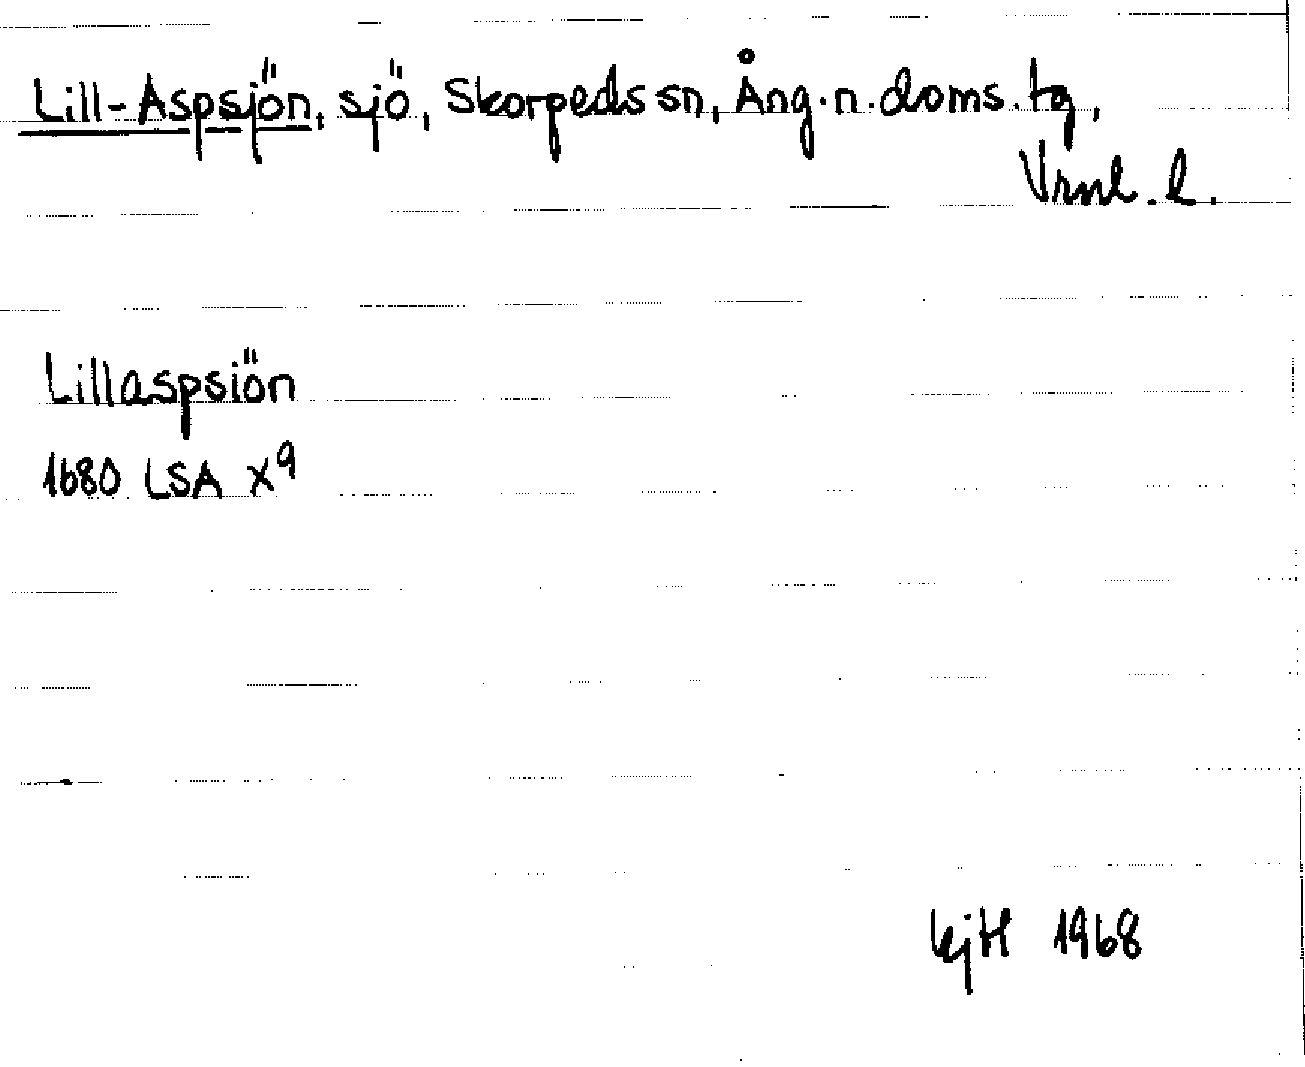 Lill-Aspsjön, sjö, Skorpeds sn, Ång.n.doms.tg,
Vrnl. l.
Lillaspsiön
1680 LSA X9
KjH 1968